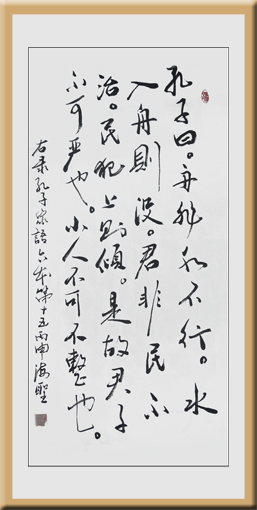 孔子曰。舟非水不行。水
入舟則没。君非民不
治。民犯上則傾。是故君子
不可不严也。小人不可不整也。
右录孔子家語六本第十五丙申海聖